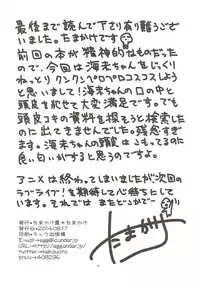 最後まで読んで下さり有り難うござ
いました。たまかけです。
前回の本が精神的なものだった
ので、今回は海未ちゃんをじっくり
ねっとり クンクンペロペロコスコスしよう
と思いまして!海未ちゃんの口の中と
頭皮を耗せて大変満足です。でも
頭皮コキの資料を探そうと検索した
のに出てきませんでした。残念すぎ
ます。海未ちゃんの頭皮はこもってるのに
良い匂いがすると思うのですよ。
アニメは終わってしまいましたが次回の
ラブライブ!を期待して心待ちとして
います。それでは またどこかでー
たまかけ
発行*たまかけ屋*たまかけ
発行日*2014.08.17